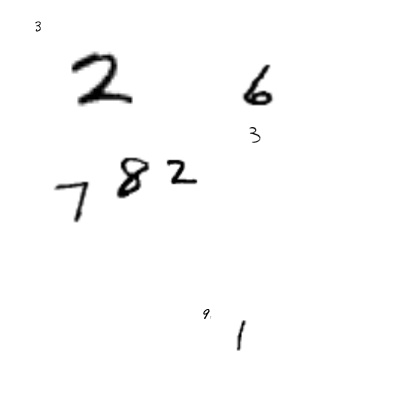 3
2 6
3
7 8 2
9
1